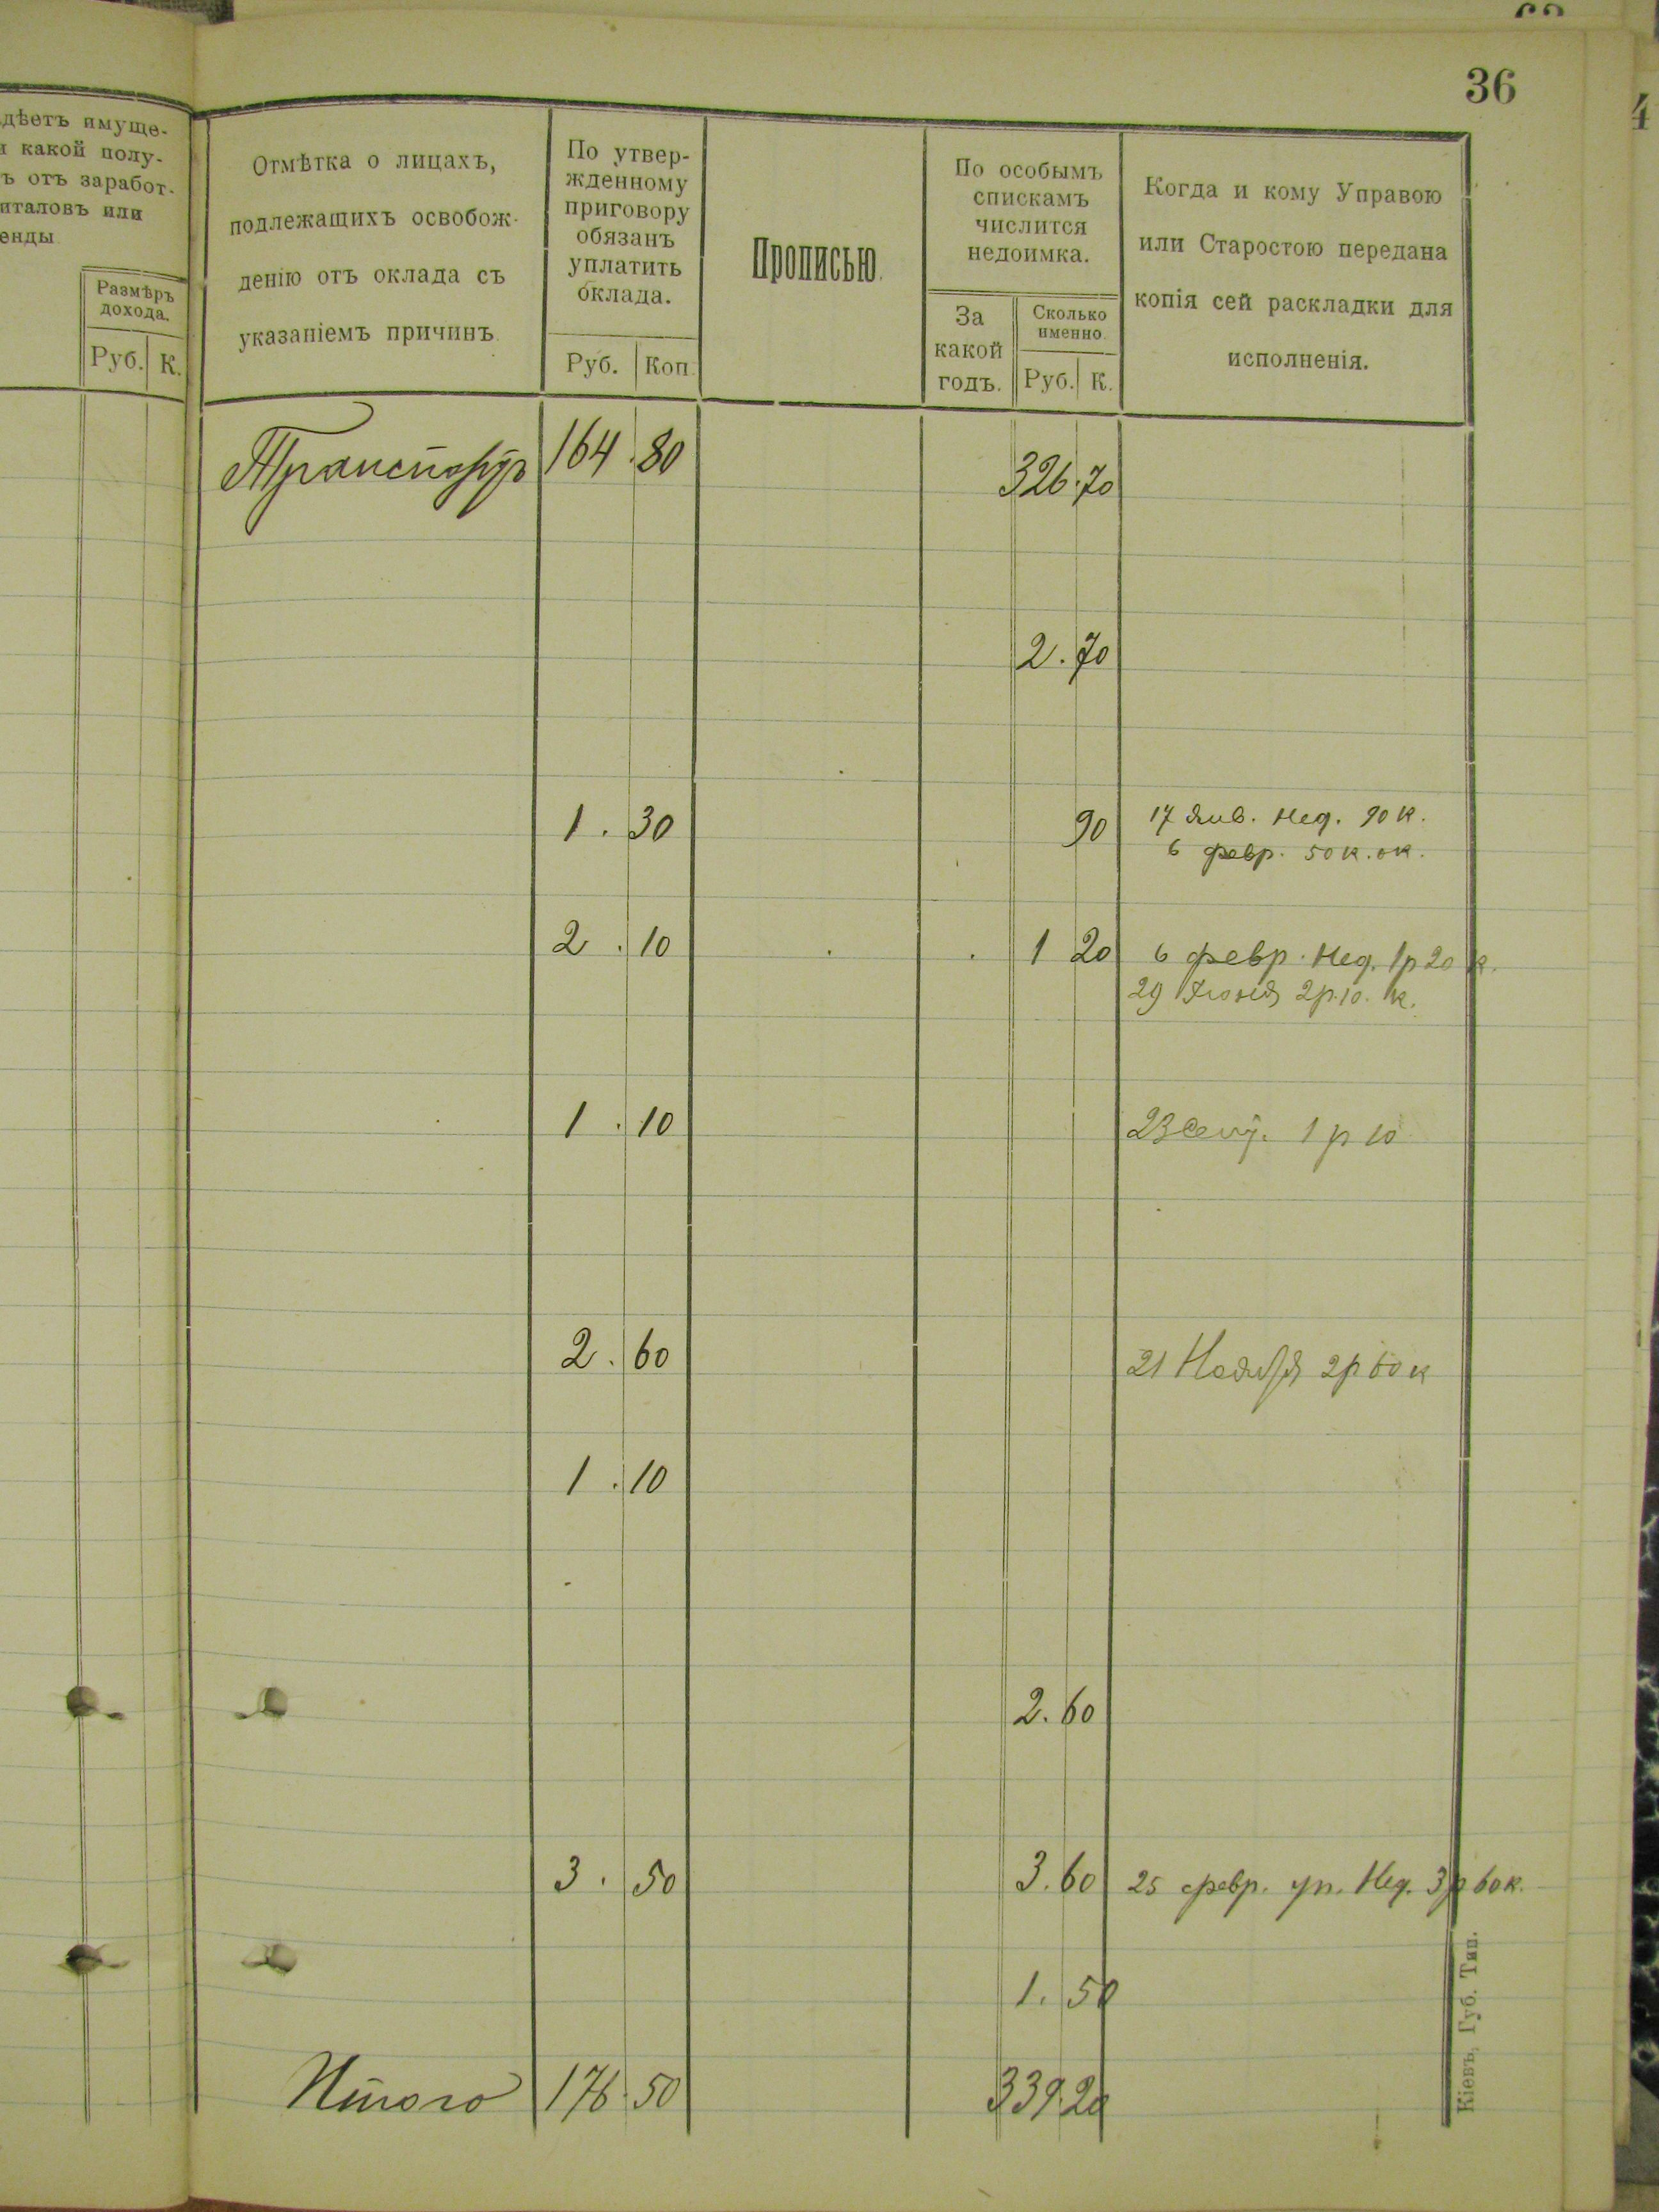 36
дѣетъ имуще-
какой полу-
ъ отъ заработ-
италовъ или
енды
Размѣръ
дохода.
Руб. К.
Отмѣтка о лицахъ,
подлежащихъ освобож-
денію отъ оклада съ
указаніемъ причинъ.
По утвер-
жденному
приговору
обязанъ
уплатить
оклада.
Руб. Коп.
Прописью.
По особымъ
спискамъ
числится
недоимка.
За
какой
годъ.
Сколько
именно.
Руб. К.
Когда и кому Управою
или Старостою передана
копія сей раскладки для
исполненія.
Транспортъ 164.80 326.70
2.70
1.30 90 17 Янв. Нед. 90 к.
6 февр. 50 к. ок.
2.10 1 20 6 февр. Нед. 1 р 20 к.
29 Июня 2 р. 10. к.
1.10 23 Сент. 1 р 10
2.60 21 Ноября 2 р 60 к
1.10
2.60
3.50 3.60 25 февр. уп. Нед. 3 р 60 к.
1.50
Итого 176.50 339.20
Кіевъ, Губ. Тип.
4